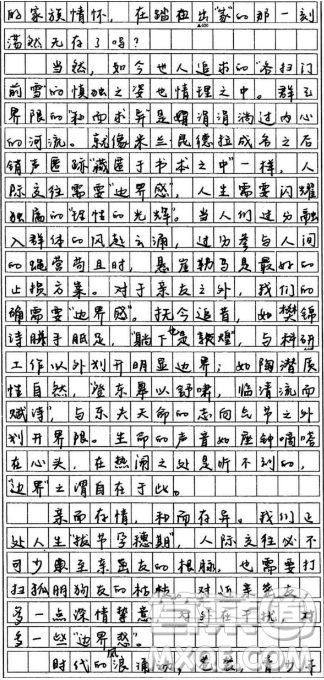 的家族情怀，在踏出“家”的那一刻
荡然无存了吗？
当然，如今世人追求的“各扫门
前雪的慎独之姿也情理之中。群己
界限的“和而求异”是涓涓淌过内心
的河流。就像米兰·昆德拉成名之后
销声匿迹“藏匿于书求之中”一样，人
际交往需要“边界感”，人生需要闪耀
独属的“理性的光辉”。当人们过分融
入群体的风起云涌，过分参与人间
的蝇营苟且时，悬崖勒马是最好的
止损方案。对于亲友之外，我们的
确需要“边界感”。抚今追昔，如樊锦
诗胼手胝足，“躺下也是敦煌”，与科研
工作以外划开明显边界；如陶潜质
性自然，“登东皋以舒啸，临清流而
赋诗”，与乐夫天命的志向点节之外
划开界限。生命的声音如座钟嘀嗒
在心头，在热闹之处是听不到的，
“边界”之谓自在于此。
亲而存情，和而存异。我们正
处人生“拔节孕穗期”，人际交往必不
可少囊至亲至友的根脉，也需要打
扫狐朋狗友的枯枝。对近亲挚友
多一点深情挚意，对外在干扰，
多一些“边界感”。
时代的风浪涌动